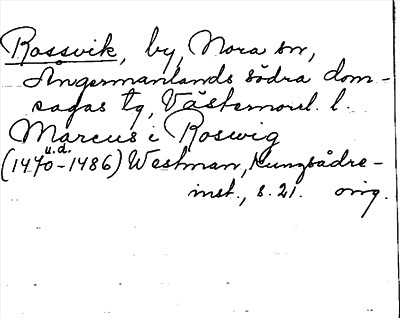 Rossvik, by, Nora sn,
Ångermanlands södra dom-
sagas tg, Västernorrl. l.
Marcus i Roswig
u.d.
(1470-1486) Westman, Kungsådre-
inst., s. 21. orig.